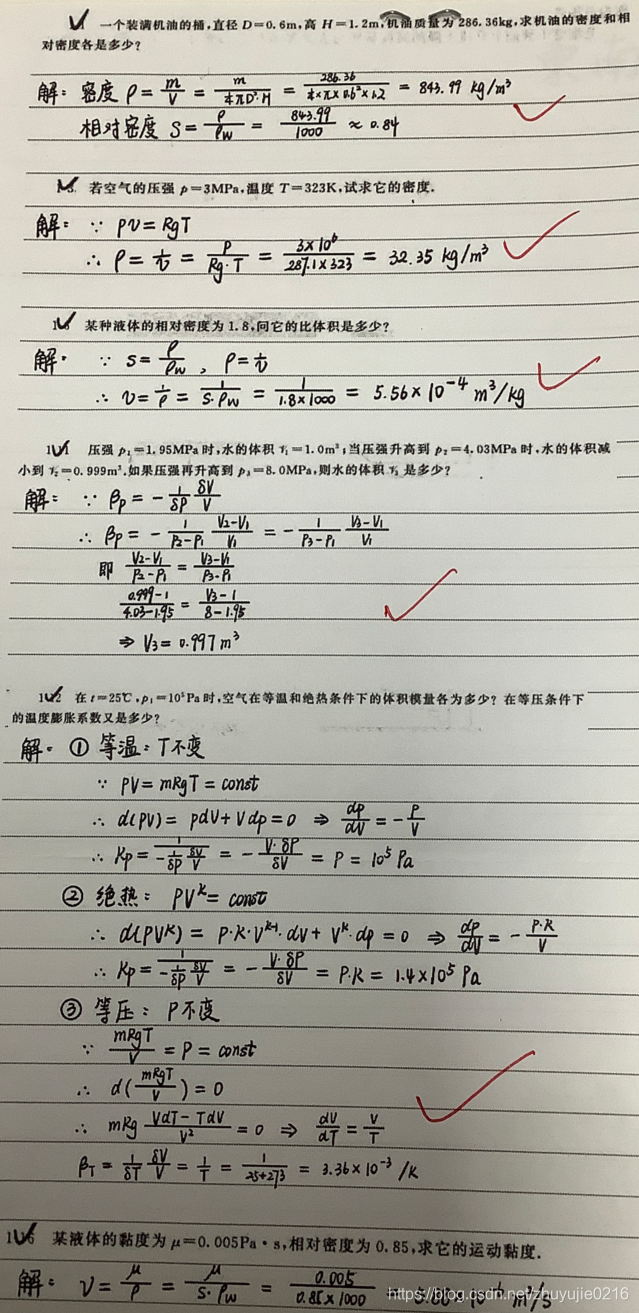 一个装满机油的桶,直径 D=0.6m,高 H=1.2m,机油质量为 286.36kg,求机油的密度和相
对密度各是多少?
解: 密度 ρ = m/V = m/(¼πD²·H) = 286.36/(¼×π×0.6²×1.2) = 843.99 kg/m³
相对密度 S = ρ/ρw = 843.99/1000 ≈ 0.84
若空气的压强 p=3MPa,温度 T=323K,试求它的密度.
解: ∵ pv = RgT
∴ ρ = 1/v = P/(Rg·T) = 3×10⁶/(287.1×323) = 32.35 kg/m³
某种液体的相对密度为 1.8,问它的比体积是多少?
解: ∵ s = ρ/ρw , ρ = 1/v
∴ v = 1/ρ = 1/(s·ρw) = 1/(1.8×1000) = 5.56×10⁻⁴ m³/kg
压强 p₁=1.95MPa 时,水的体积 V₁=1.0m³;当压强升高到 p₂=4.03MPa 时,水的体积减
小到 V₂=0.999m³.如果压强再升高到 p₃=8.0MPa,则水的体积 V₃ 是多少?
解: ∵ βp = - 1/δP δV/V
∴ βp = - 1/(P₂-P₁) (V₂-V₁)/V₁ = - 1/(P₃-P₁) (V₃-V₁)/V₁
即 (V₂-V₁)/(P₂-P₁) = (V₃-V₁)/(P₃-P₁)
(0.999-1)/(4.03-1.95) = (V₃-1)/(8-1.95)
⇒ V₃ = 0.997 m³
在 t=25℃,p₁=10⁵Pa 时,空气在等温和绝热条件下的体积模量各为多少? 在等压条件下
的温度膨胀系数又是多少?
解: ① 等温: T不变
∵ PV = mRgT = const
∴ d(PV) = pdV + Vdp = 0 ⇒ dp/dV = - P/V
∴ Kp = 1/(-1/δP δV/V) = - V·δP/δV = P = 10⁵ Pa
② 绝热: PVᵏ = const
∴ d(PVᵏ) = P·K·Vᵏ⁻¹·dV + Vᵏ·dp = 0 ⇒ dp/dV = - P·K/V
∴ Kp = 1/(-1/δP δV/V) = - V·δP/δV = P·K = 1.4×10⁵ Pa
③ 等压: P不变
∵ mRgT/V = P = const
∴ d(mRgT/V) = 0
∴ mRg (VdT-TdV)/V² = 0 ⇒ dV/dT = V/T
βT = 1/δT δV/V = 1/T = 1/(25+273) = 3.36×10⁻³ /K
某液体的黏度为 μ=0.005Pa·s,相对密度为 0.85,求它的运动黏度.
解: ν = μ/ρ = μ/(s·ρw) = 0.005/(0.85×1000) m²/s
https://blog.csdn.net/zhuyujie0216